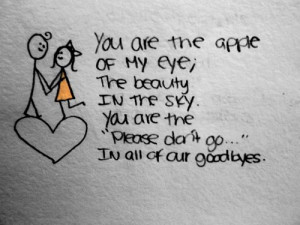 You are the apple
OF MY eye;
The beauty
IN THE SKY.
You are the
"Please don't go..."
In all of our goodbyes.